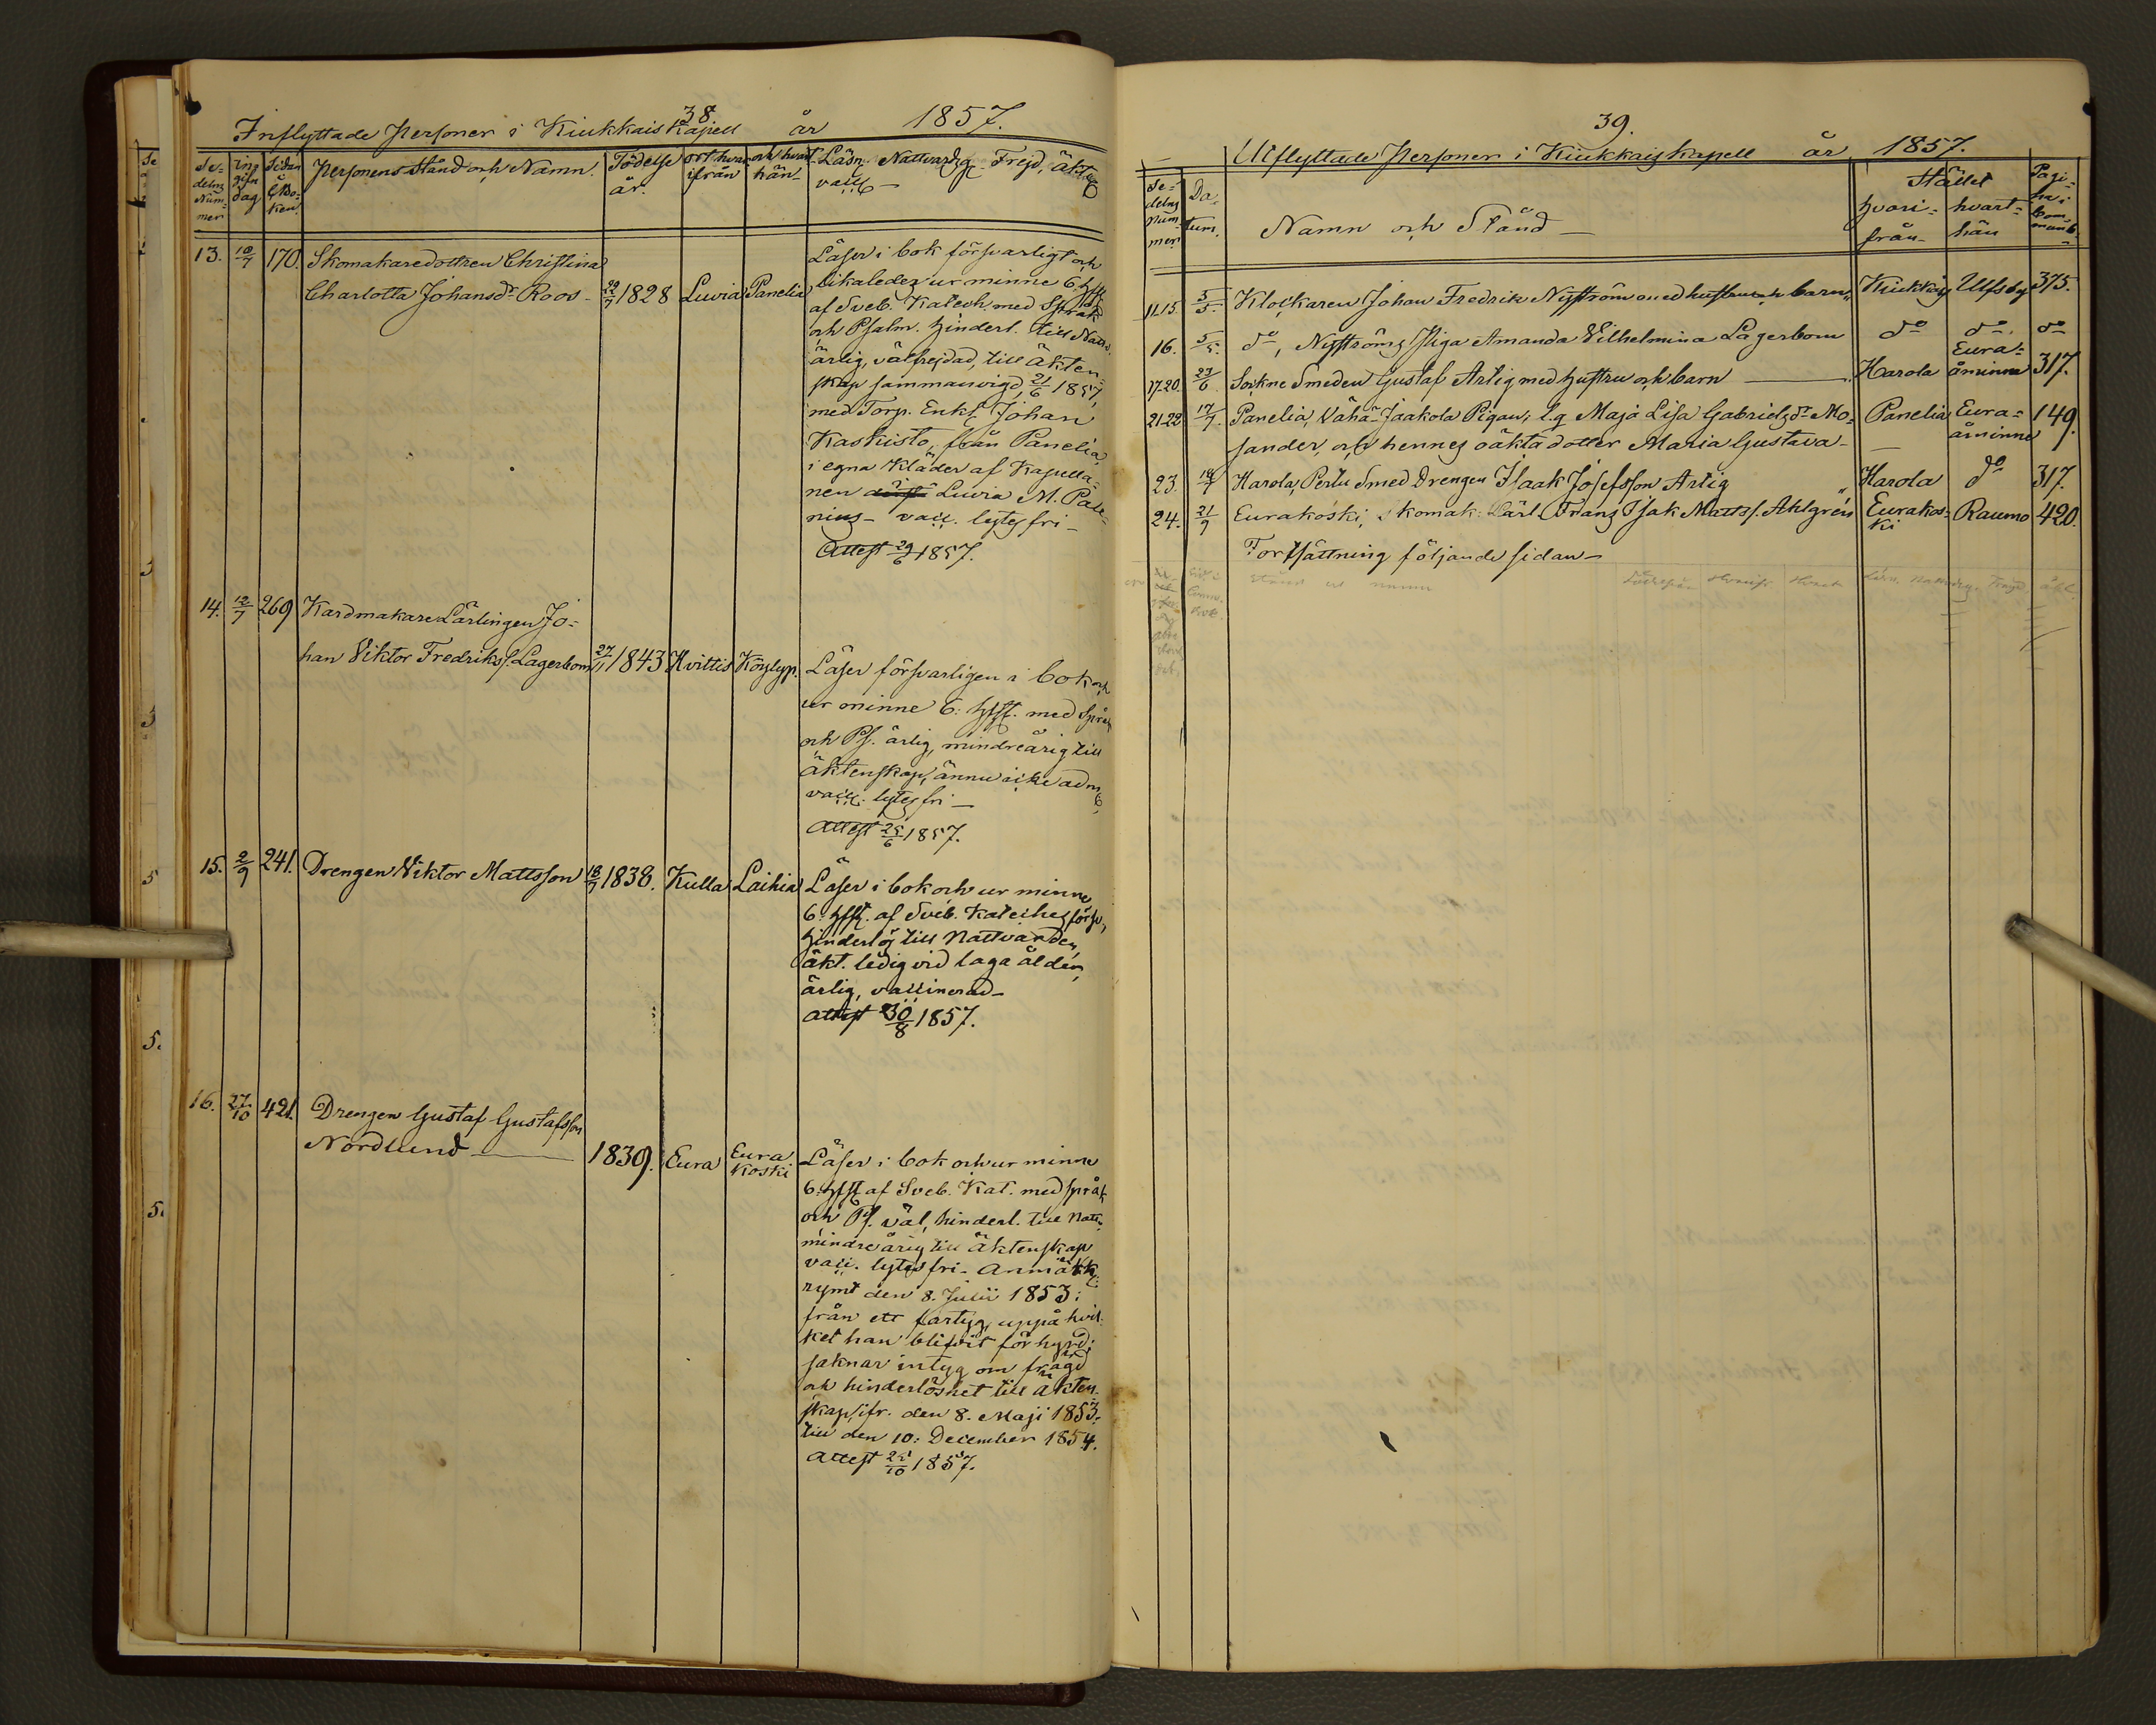 38.
Inflyttade Personer i Kiukkais Kapell år 1857.
Se-
delns
Num-
mer
ing
gifn
dag
Sidan
i
C.Bo-
ken.
Personens Stånd och Namn.
Födelse
år.
ort hvar
ifrån
och hvart
hän
Läsn. Nattvardsg. Frejd, äkt.
vacc
13. 10/7 170. Skomakaredottren Christina
Charlotta Johansdr Roos - 22/7 1828 Luvia Panelia
Läser i bok försvarligt och
likaledes ur minne 6. Hfst.
af Sveb. Katech. med Språk
och Psalm. hinderl. till Nattv.
ärlig, välfrejdad, till äkten-
skap sammanvigd, 21/6 1857,
med Torp. Enkl. Johan
Kaskisto, från Panelia,
i egna kläder af Kapella-
nen i Luvia M. Pale-
nius - vacc. lytesfri -
Attest 29/6 1857.
14. 12/7 269 Kardmakare Lärlingen Jo-
han Viktor Fredrikss. Lagerbom 27/11 1843 Hvittis Köylyp.
Läser försvarligen i bok och
ur minne 6. Hfst. med Språk
och Ps. ärlig, mindreårig till
äktenskap, ännu icke adm.
vacc. lytesfri -
Attest 25/6 1857.
15. 2/9 241. Drengen Viktor Mattsson 18/7 1838. Kulla Laihia
Läser i bok och ur minne
6. Hfst. af Sveb. Kateches försv.,
hinderlös till Nattvarden,
äkt. ledig vid laga ålder,
ärlig, vaccinerad -
Attest 30/8 1857.
16. 27/10 421. Drengen Gustaf Gustafsson
Nordlund 1839. Eura Eura
koski
Läser i bok och ur minne
6. Hfst af Sveb. Kat. med språk
och Ps. väl, hinderl. till Nattv.
mindreårig till äktenskap
vacc. lytesfri. Anmärk.
rymt den 8. Julii 1853:
från ett fartyg, uppå hvil-
ket han blifvit förhyrd;
saknar intyg om frägd
och hinderlöshet till äkten-
skap, ifr. den 8. Maji 1853.
till den 10: December 1854.
Attest 25/10 1857.
39.
Utflyttade Personer i Kiukkais Kapell år 1857.
Se-
delns
Num-
mer
Da-
tum.
Namn och Stånd
Stället
hvari-
från
hvart-
hän
Pagi-
na i
Com-
munb.
11.15. 5/5. Klockaren Johan Fredrik Nyström med hustru och barn Kiukkais Ulfsby 375.
16. 5/5. do, Nyströms Piga Amanda Vilhelmina Lagerbom do do do
17.20. 23/6. Sockne Smeden Gustaf Artig med hustru och barn Harola Eura-
åminne 317.
21-22 17/7. Panelia, Vähä-Jaakola Pigan, l.q Maja Lisa Gabrielsdr Mo- Panelia Eura-
åminne 149.
sander, och hennes oäkta dotter Maria Gustava -
23. 18/7 Harola, Perlu Smed Drengen Isaak Josefsson Artig Harola do 317.
24. 21/9 Eurakoski, Skomak. Lärl. Frans Isak Matts s. Ahlgrén Eurakos-
ki Raumo 420.
Fortsättning följande sidan -